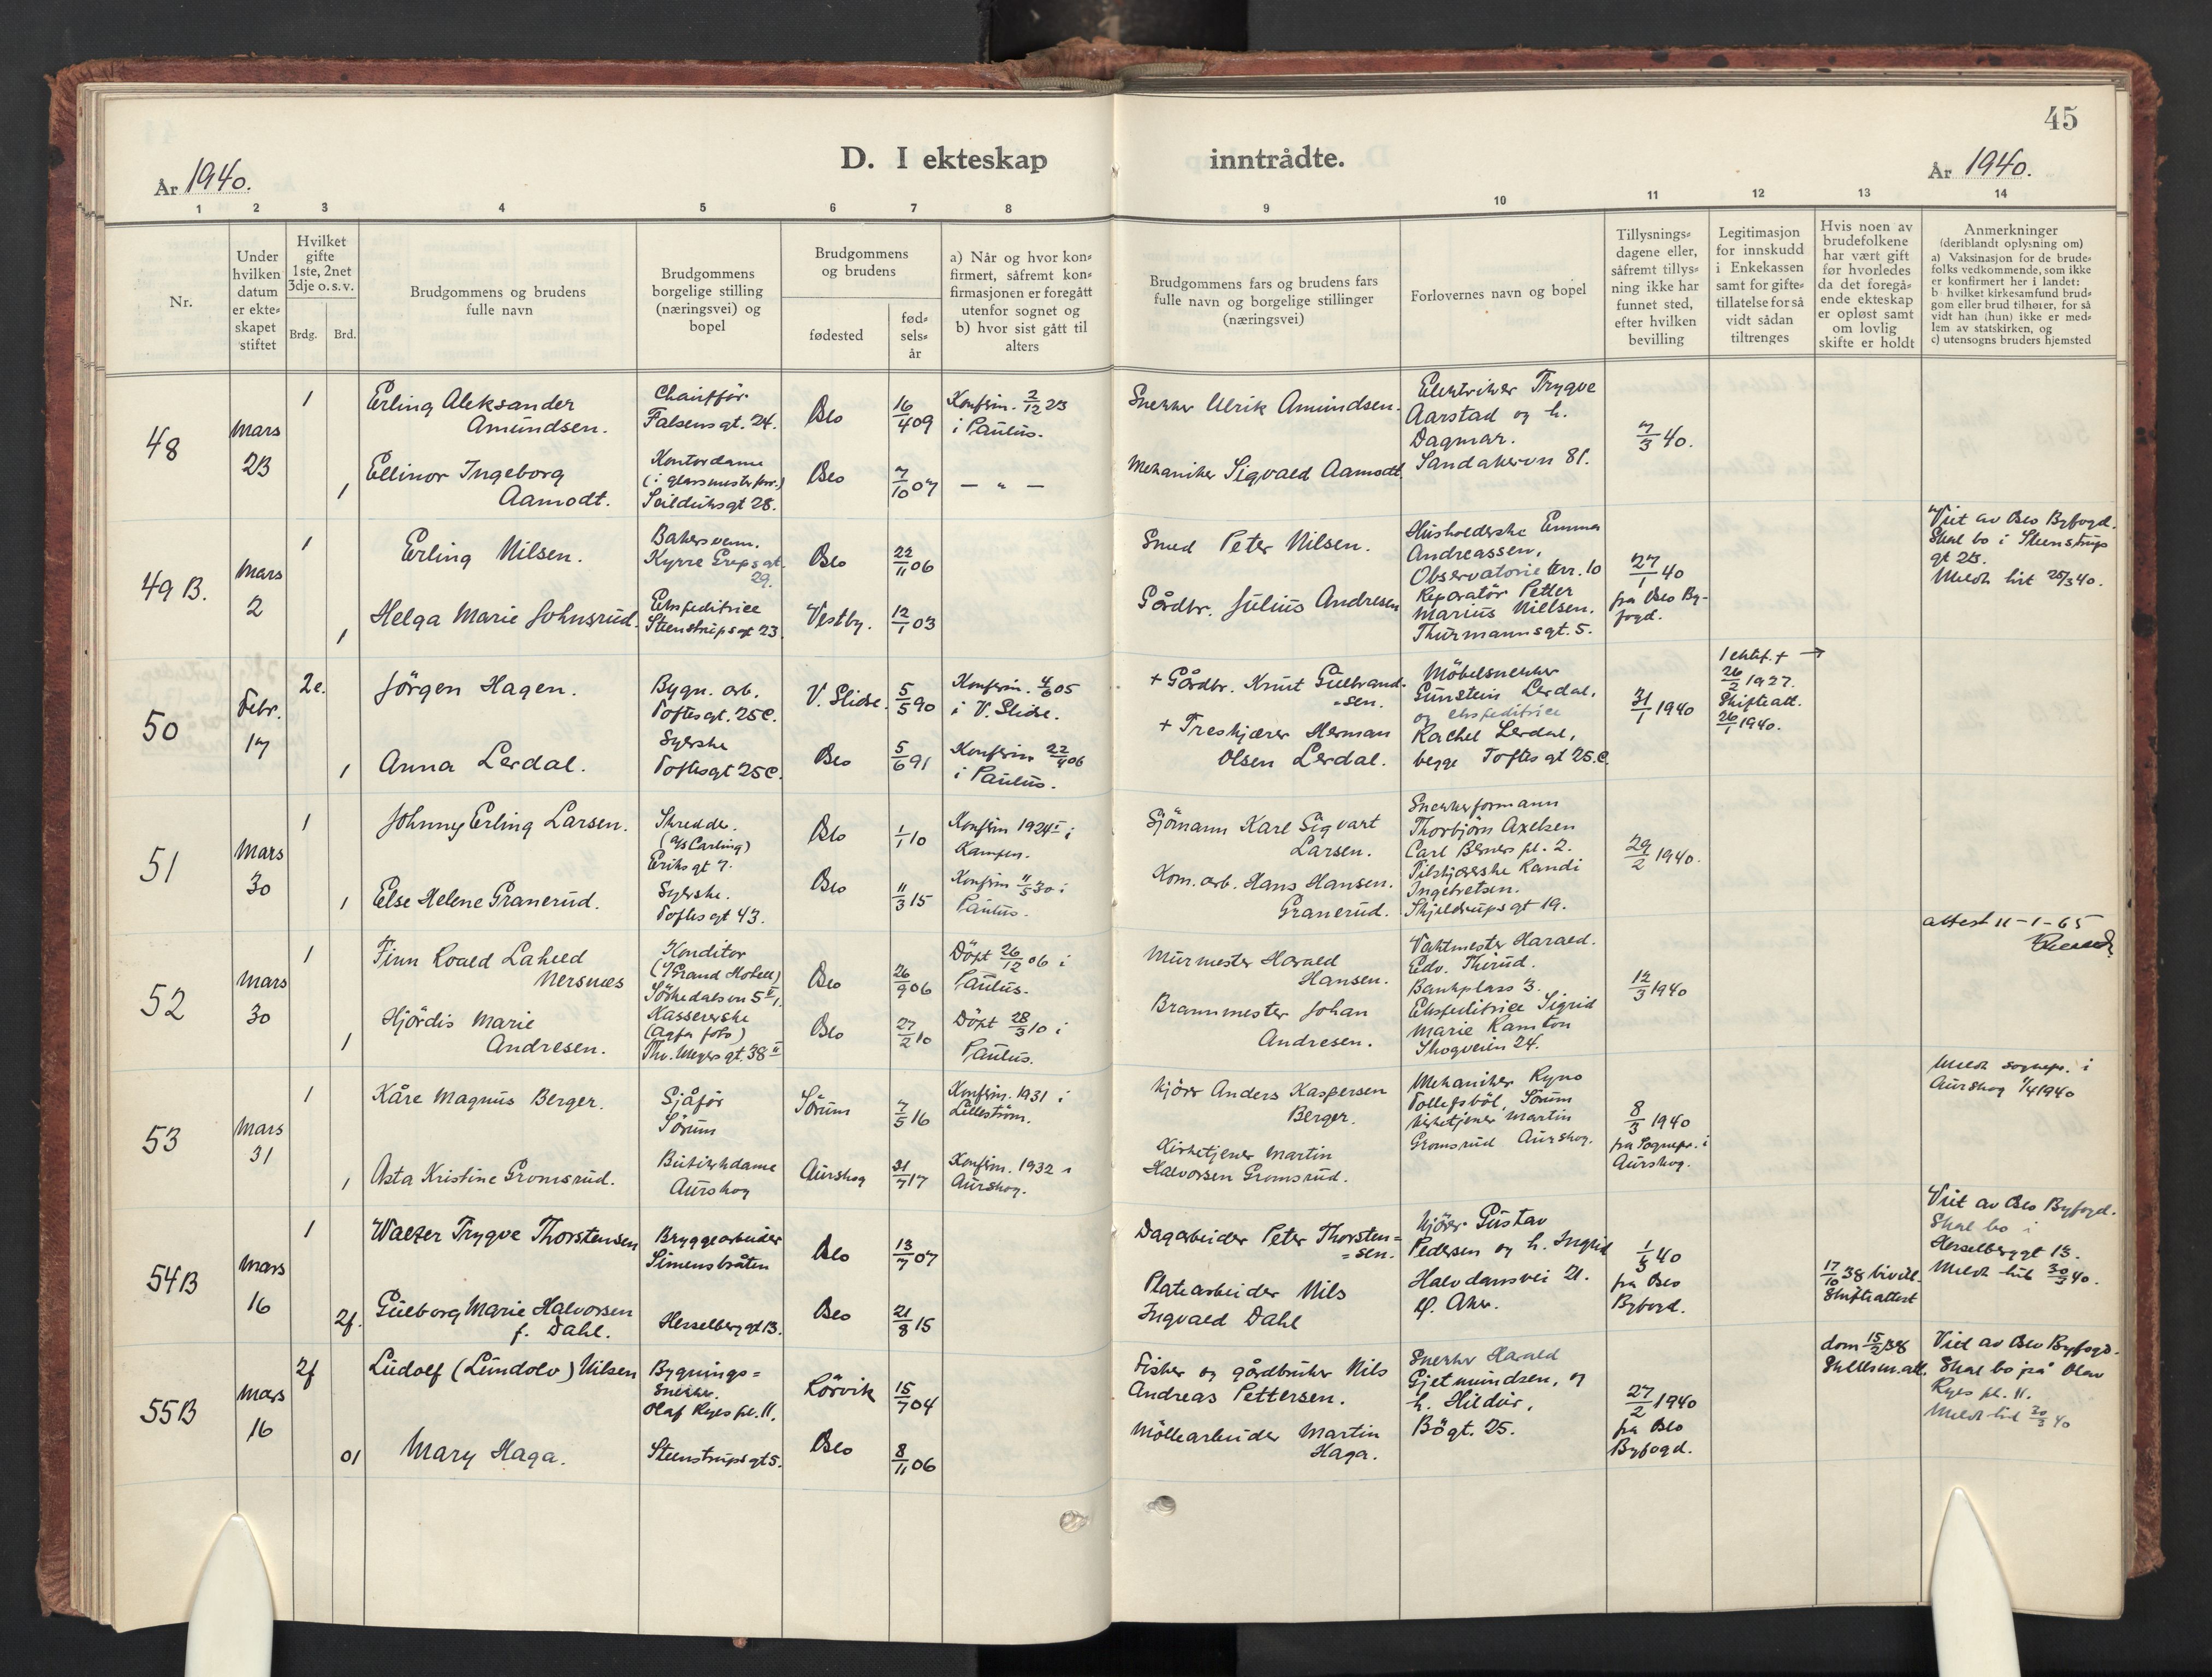 45
D. I ekteskap inntrådte.
År 1940.
År 1940.
1 2 3 4 5 6 7 8 9 10 11 12 13 14
Nr.
Under
hvilken
datum
er ekte-
skapet
stiftet
Hvilket
gifte
1ste, 2net
3dje o. s. v.
Brdg. Brd.
Brudgommens og brudens
fulle navn
Brudgommens
borgelige stilling
(næringsvei) og
bopel
Brudgommens
og brudens
fødested
fød-
sels-
år
a) Når og hvor kon-
firmert, såfremt kon-
firmasjonen er foregått
utenfor sognet og
b) hvor sist gått til
alters
Brudgommens fars og brudens fars
fulle navn og borgelige stillinger
(næringsvei)
Forlovernes navn og bopel
Tillysnings-
dagene eller,
såfremt tillys-
ning ikke har
funnet sted,
efter hvilken
bevilling
Legitimasjon
for innskudd
i Enkekassen
samt for gifte-
tillatelse for så
vidt sådan
tiltrenges
Hvis noen av
brudefolkene
har vært gift
før hvorledes
da det foregå-
ende ekteskap
er opløst samt
om lovlig
skifte er holdt
Anmerkninger
(deriblandt oplysning om)
a) Vaksinasjon for de brude-
folks vedkommende, som ikke
er konfirmert her i landet:
b hvilket kirkesamfund brud-
gom eller brud tilhører, for så
vidt han (hun) ikke er med-
lem av statskirken, og
c) utensogns bruders hjemsted
48
Mars
23
1
Erling Aleksander
Amundsen.
Chaufför
Falsensgt. 24.
Oslo
16/4 09
Konfirm. 2/12 23
i Paulus.
Snekker Ulrik Amundsen.
Elektriker Trygve
Aarstad og h.
Dagmar.
Sandakervn 81.
7/3 40.
1
Ellinor Ingeborg
Aamodt.
Kontordame
(i glassmesterforr.)
Seilduksgt 28.
Oslo
7/10 07
— " —
Mekaniker Sigvald Aamodt
49 B.
Mars
2
1
Erling Nilsen.
Bakersvenn.
Kyrre Grepsgt.
29.
Oslo
22/11 06
Smed Peter Nilsen.
Husholderske Emma
Andreassen,
Observatorie terr. 10
Reparatör Petter
Marius Nielsen.
Thurmannsgt. 5.
27/1 40
fra Oslo By-
fogd.
Viet av Oslo Byfogd.
Skal bo i Steenstrups
gt 23.
Meldt hit 25/3 40.
1
Helga Marie Johnsrud.
Ekspeditrice
Steenstrupsgt 23.
Vestby.
12/1 03
Gårdbr. Julius Andresen
50
Febr.
17
2e.
Jörgen Hagen.
Bygn. arb.
Toftesgt. 25 C.
V. Slidre.
5/5 90
Konfirm. 4/6 05
i V. Slidre.
+ Gårdbr. Knut Gulbrand-
-sen.
Möbelsnekker
Gunstein Lerdal,
og ekspeditrice
Rachel Lerdal,
begge Toftesgt 25.C.
31/1 1940
1 ektef. + →
26/2 1927.
Skifteatt.
26/1 1940.
1
Anna Lerdal.
Syerske
Toftesgt 25 C.
Oslo
5/6 91
Konfirm 22/4 06
i Paulus.
+ Treskjærer Herman
Olsen Lerdal.
51
Mars
30
1
Johnny Erling Larsen.
Skredde.
(A/S Carling)
Eriksgt 7.
Oslo
1/1 10
Konfirm 1924 i
Kampen.
Sjömann Karl Sigvart
Larsen.
Snekkerformann
Thorbjörn Axelsen
Carl Berners pl. 2.
Tilskjærerske Randi
Ingebretsen.
Skjeldrupsgt 19.
29/2 1940.
1
Else Helene Granerud.
Syerske.
Toftesgt 43.
Oslo
11/3 15
Konfirm 11/5 30 i
Paulus.
Kom. arb. Hans Hansen
Granerud.
52
Mars
30
1
Finn Roald Laheld
Mersnæs
Konditor
(Grand Hotell)
Sörkedalsvn 5 II.
Oslo
26/9 06
Döpt 26/12 06 i
Paulus.
Murmester Harald
Hansen.
Vaktmester Harald.
Edv. Thirud.
Bankplass 3.
Ekspeditrice Sigrid
Marie Ramton
Skogveien 24.
12/3 1940
attest 11-1-65
1
Hjördis Marie
Andresen.
Kassererske
(Agfa foto)
Thv. Meyersgt. 38 II
Oslo
27/2 10
Döpt 28/3 10 i
Paulus.
Brannmester Johan
Andresen.
53
Mars
31
1
Kåre Magnus Berger.
Sjåför
Sörum
Sörum
7/5 16
Konfirm. 1931 i
Lilleström.
Kjörer Anders Kaspersen
Berger.
Mekaniker Kyno
Tollefsböl, Sörum
Kirketjener Martin
Gromsrud Aurskog.
8/3 1940
fra Sognepr. i
Aurskog.
Meldt sognepr. i
Aurskog 1/4 1940
1
Asta Kristine Gromsrud.
Butikkdame
Aurskog
Aurskog
31/7 17
Konfirm. 1932 i
Aurskog.
Kirketjener Martin
Halvorsen Gromsrud.
54 B
Mars
16
1
Walter Trygve Thorstensen
Bryggearbeider
Simensbråten
Oslo
13/7 07
Dagarbeider Peter Thorsten-
-sen.
Kjörer Gustav
Pedersen og h. Ingrid
Halvdansvei 21.
Ø. Aker.
1/3 40
fra Oslo
Byfogd.
17/10 38 bevill.
Skifteattest
Viet av Oslo Byfogd.
Skal bo i
Hesselberggt 13.
Meldt hit 30/3 40.
2f.
Gulborg Marie Halvorsen
f. Dahl.
Hesselberggt 13.
Oslo
21/8 15
Platearbeider Nils
Ingvald Dahl
55 B
Mars
16
2f
Ludolf (Lundolv) Nilsen
Bygnings=
snekker.
Olaf Ryes pl. 11.
Rörvik
15/7 04
Fisker og gårdbruker Nils
Andreas Pettersen.
Snekker Harald
Gjetmundsen, og
h. Hildur,
Bögt. 25.
27/2 1940
fra Oslo
Byfogd.
dom 15/2 38
Skillsm.att.
Viet av Oslo Byfogd.
Skal bo på Olav
Ryes pl. 11.
Meldt hit 30/3 40
01
Mary Haga.
Steenstrupsgt 5.
Oslo
8/11 06
Möllearbeider Martin
Haga.